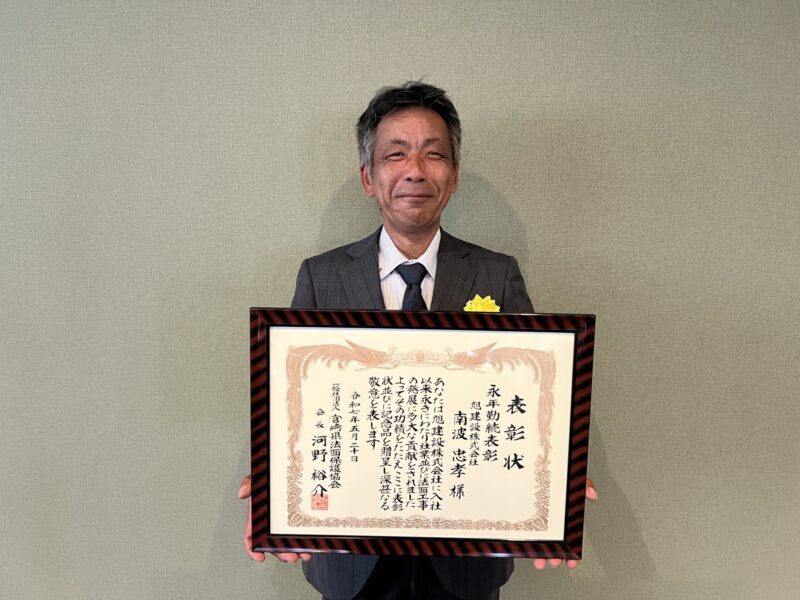 表彰状
永年勤続表彰
旭建設株式会社
南波忠孝様
あなたは旭建設株式会社に入社
以来永きにわたり社業並びに法面工事
の発展に多大な貢献をされました
よってその功績をたたえここに表彰
状並びに記念品を贈呈し深甚なる
敬意を表します
令和七年五月二十日
一般社団法人宮崎県法面保護協会
会長河野裕介